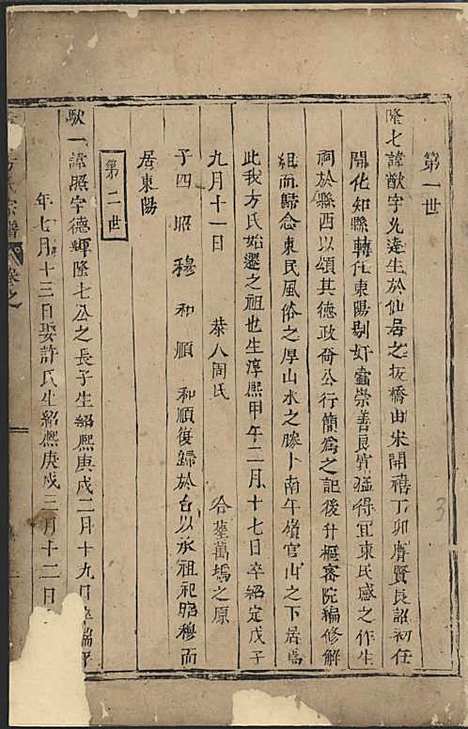 第一世
隆七諱猷字允達生於仙居之坂橋由宋開禧丁卯膺賢良詔初任
開化知縣轉任東陽剔奸蠹崇善良寬猛得宜東民感之作生
祠於縣西以頌其德政倚公行簡為之記後升樞審院編修解
組而歸念東民風俗之厚山水之勝卜南午嶺官山之下居焉
此我方氏始遷之祖也生淳熙甲午二月十七日卒紹定戊子
九月十一日 恭人周氏 合塟萬塢之原
子四 昭 穆 和 順 和順復歸於台以承祖祀昭穆而
居東陽
第二世
馱一諱照字德輝隆七公之長子生紹熙庚戌二月十九日卒端平
年七月十三日娶許氏生紹熙庚戌三月十二日
方氏宗譜 卷之
3